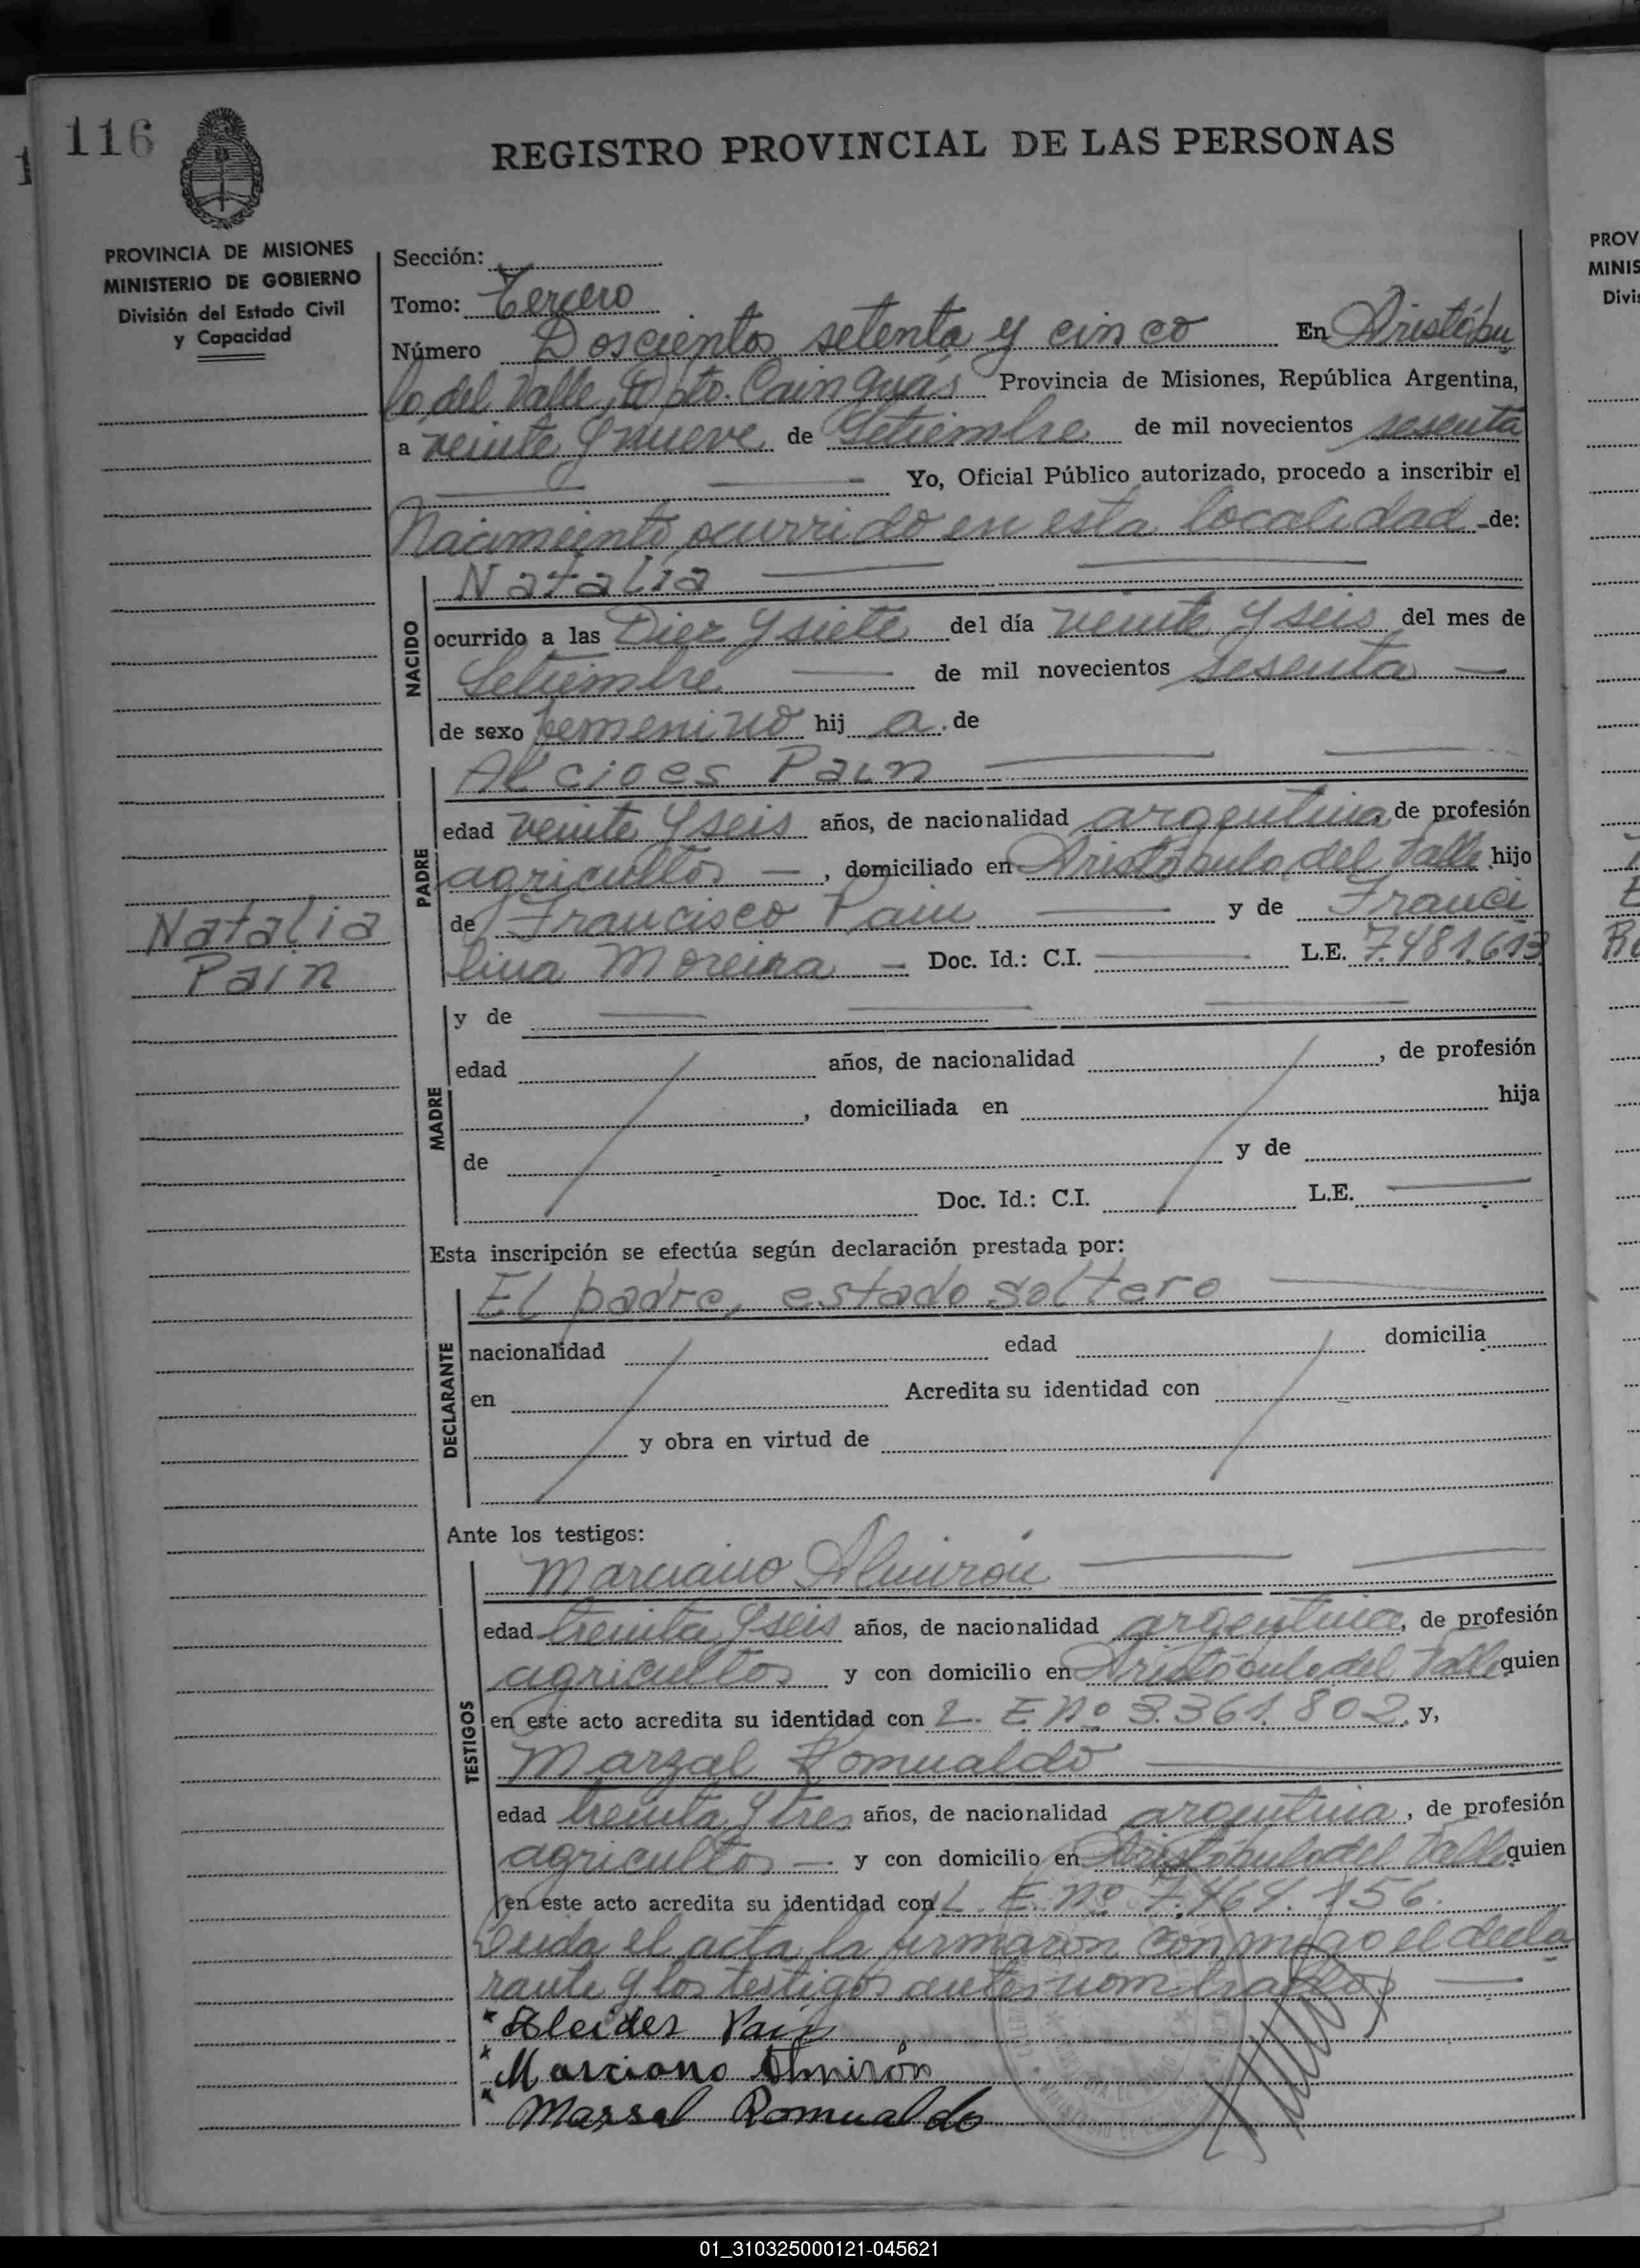 116
REGISTRO PROVINCIAL DE LAS PERSONAS
PROVINCIA DE MISIONES
MINISTERIO DE GOBIERNO
División del Estado Civil
y Capacidad
Sección:
Tomo: Tercero
Número Doscientos setenta y cinco En Aristóbu
lo del Valle, Dpto. Cainguás Provincia de Misiones, República Argentina,
a veinte y nueve de Setiembre de mil novecientos sesenta
Yo, Oficial Público autorizado, procedo a inscribir el
Nacimiento ocurrido en esta localidad de:
NACIDO
Natalia
ocurrido a las Diez y siete del día veinte y seis del mes de
Setiembre de mil novecientos sesenta
de sexo femenino hij a de
PADRE
Alcides Pain
edad veinte y seis años, de nacionalidad argentina de profesión
agricultor, domiciliado en Aristóbulo del Valle hijo
de Francisco Pain y de Franci
lina Moreira Doc. Id.: C.I. L.E. 7.481.613
Natalia
Pain
MADRE
y de
edad años, de nacionalidad , de profesión
, domiciliada en hija
de y de
Doc. Id.: C.I. L.E.
Esta inscripción se efectúa según declaración prestada por:
DECLARANTE
El padre, estado soltero
nacionalidad edad domicilia
en Acredita su identidad con
y obra en virtud de
Ante los testigos:
TESTIGOS
Marciano Almirón
edad treinta y seis años, de nacionalidad argentina, de profesión
agricultor y con domicilio en Aristóbulo del Valle quien
en este acto acredita su identidad con L. E. Nº 3.361.802. y,
Marzal Romualdo
edad treinta y tres años, de nacionalidad argentina, de profesión
agricultor y con domicilio en Aristóbulo del Valle quien
en este acto acredita su identidad con L. E. Nº 7.464.156.
Leida el acta la firmaron conmigo el decla
rante y los testigos antes nombrados
Alcides Pain
Marciano Almirón
Marsal Romualdo
PROV
MINIS
Divis
01_310325000121-045621